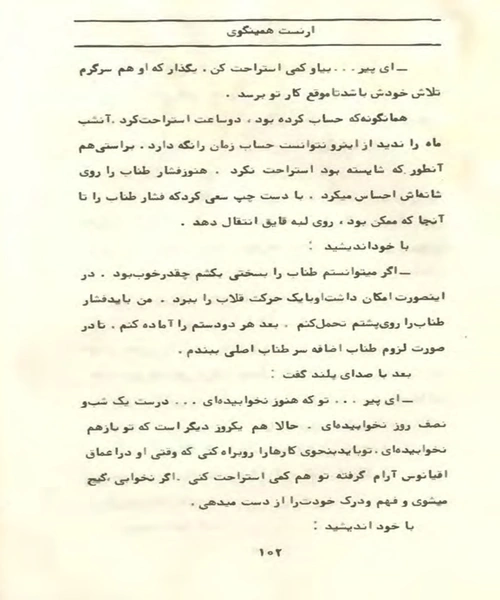 ارنست همینگوی
ــ ای پیر ... بیاو کمی استراحت کن . بگذار که او هم سرگرم
تلاش خودش باشدتاموقع کار تو برسد .
همانگونه‌که حساب کرده بود ، دوساعت استراحت‌کرد .آنشب
ماه را ندید از اینرو نتوانست حساب زمان رانگه دارد . براستی‌هم
آنطور که شایسته بود استراحت نکرد . هنوزفشار طناب را روی
شانه‌اش احساس میکرد . با دست چپ سعی کردکه فشار طناب را تا
آنجا که ممکن بود ، روی لبه قایق انتقال دهد .
با خوداندیشید :
ــ اگر میتوانستم طناب را بسختی بکشم چقدرخوب‌بود . در
اینصورت امکان داشت‌اوبایک حرکت قلاب را ببرد . من بایدفشار
طناب‌را روی‌پشتم تحمل‌کنم . بعد هر دودستم را آماده کنم . تادر
صورت لزوم طناب اضافه سر طناب اصلی ببندم .
بعد با صدای بلند گفت :
ــ ای پیر ... تو که هنوز نخوابیده‌ای ... درست یک شب‌و
نصف روز نخوابیده‌ای . حالا هم یکروز دیگر است که تو بازهم
نخوابیده‌ای .توبایدبنحوی کارهارا روبراه کنی که وقتی او دراعماق
اقیانوس آرام گرفته تو هم کمی استراحت کنی .اگر نخوابی ،گیج
میشوی و فهم ودرک خودت‌را از دست میدهی .
با خود اندیشید :
۱۰۲